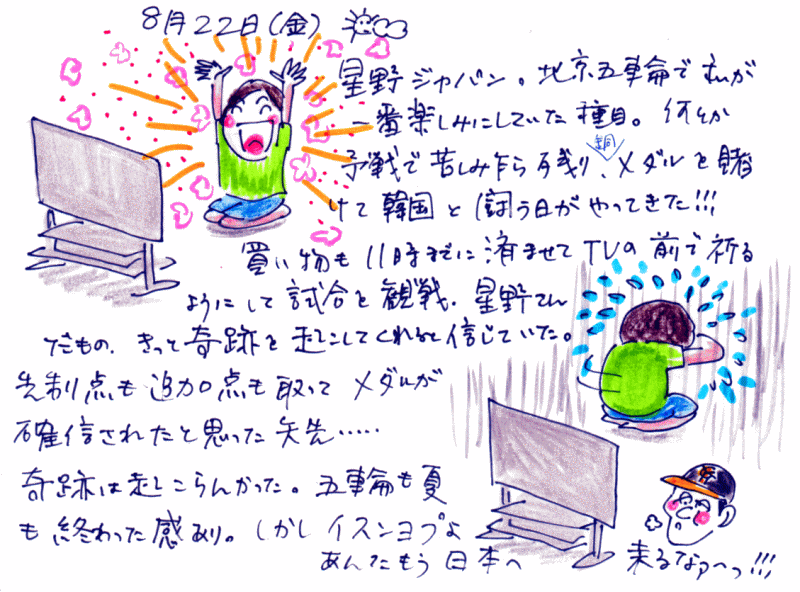 8月22日(金)
星野ジャパン。北京五輪でオレが
一番楽しみにしていた種目。何とか
予戦で苦しみ乍ら残り、銅メダルを賭
けて韓国と闘う日がやってきた!!!
買い物も11時までに済ませてTVの前で祈る
ようにして試合を観戦。星野さん
だもの、きっと奇跡を起こしてくれると信じていた。
先制点も追加点も取ってメダルが
確信されたと思った矢先……
奇跡は起こらんかった。五輪も夏
も終わった感あり。しかしイスンヨプよ
あんたもう日本へ
来るなァ〜っ!!!